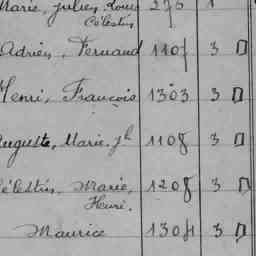 Marie, Julien, Louis 276 1
Célestin
Adrien, Fernand 1107 3 D
Henri, François 1303 3 D
Auguste, Marie, Jh 1108 3 D
Célestin, Marie, 1208 3 D
Henri.
Maurice 1304 3 D